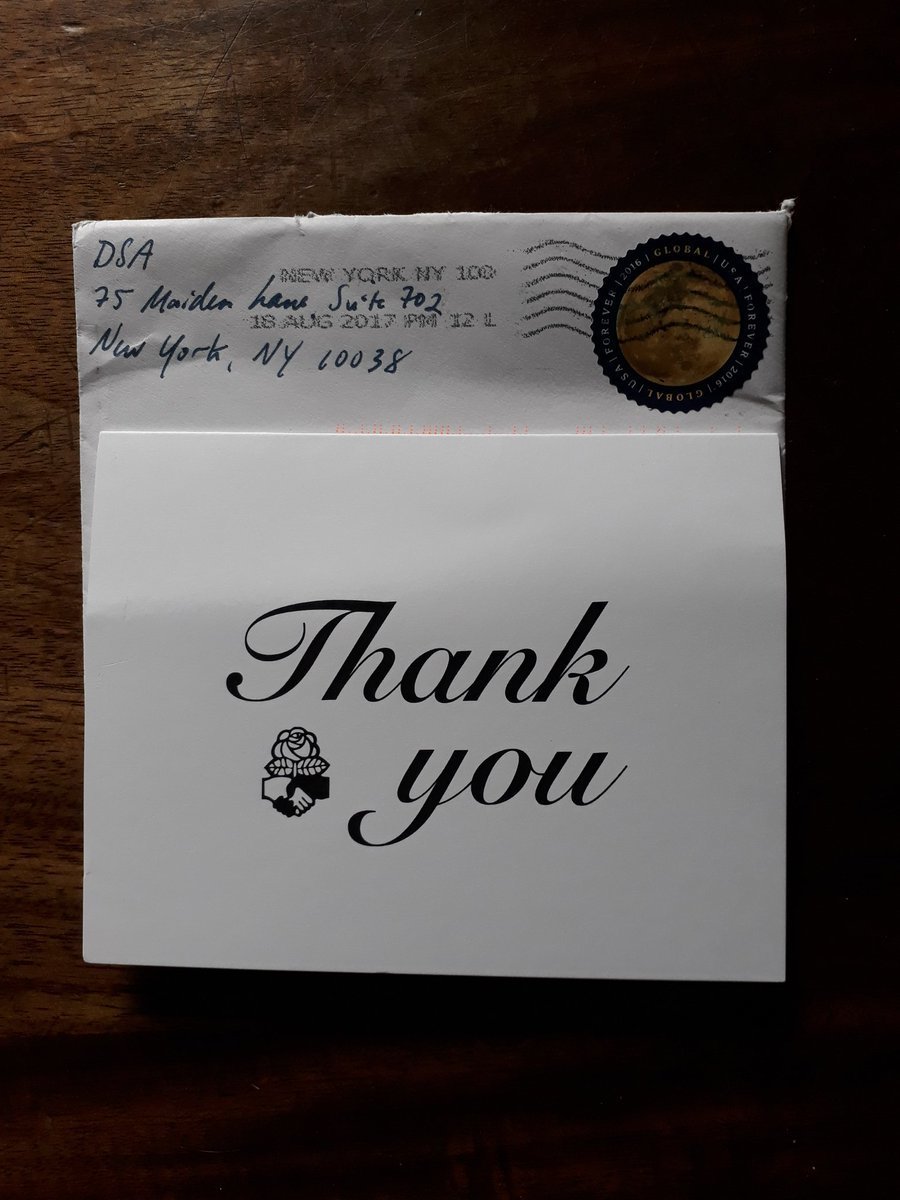 DSA
75 Maiden Lane Suite 702
New York, NY 10038
NEW YORK NY 100
18 AUG 2017 PM 12 L
GLOBAL | USA | FOREVER | 2016 | GLOBAL | USA | FOREVER | 2016 |
Thank
you